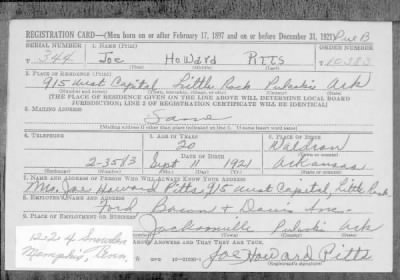 REGISTRATION CARD—(Men born on or after February 17, 1897 and on or before December 31, 1921)
SERIAL NUMBER 1. NAME (Print) ORDER NUMBER
T 344 Joe Howard Pitts 10383
(First) (Middle) (Last)
2. PLACE OF RESIDENCE (Print)
915 West Capital Little Rock Pulaski Ark
(Number and street) (Town) (County) (State)
[THE PLACE OF RESIDENCE GIVEN ON THE LINE ABOVE WILL DETERMINE LOCAL BOARD
JURISDICTION; LINE 2 OF REGISTRATION CERTIFICATE WILL BE IDENTICAL]
3. MAILING ADDRESS
Same
[Mailing address if other than place indicated on line 2. If same insert word same]
4. TELEPHONE 5. AGE IN YEARS 6. PLACE OF BIRTH
20 Waldron
DATE OF BIRTH
2-3583 Sept 11 1921 Arkansas
7. NAME AND ADDRESS OF PERSON WHO WILL ALWAYS KNOW YOUR ADDRESS
Mrs. Joe Howard Pitts, 915 West Capital, Little Rock
8. EMPLOYER'S NAME AND ADDRESS
Ford Bacon & Davis Inc.
9. PLACE OF EMPLOYMENT OR BUSINESS
Jacksonville Pulaski Ark
1224 Snowden
Memphis, Tenn.
ABOVE ANSWERS AND THAT THEY ARE TRUE.
Joe Howard Pitts
(Registrant's signature)